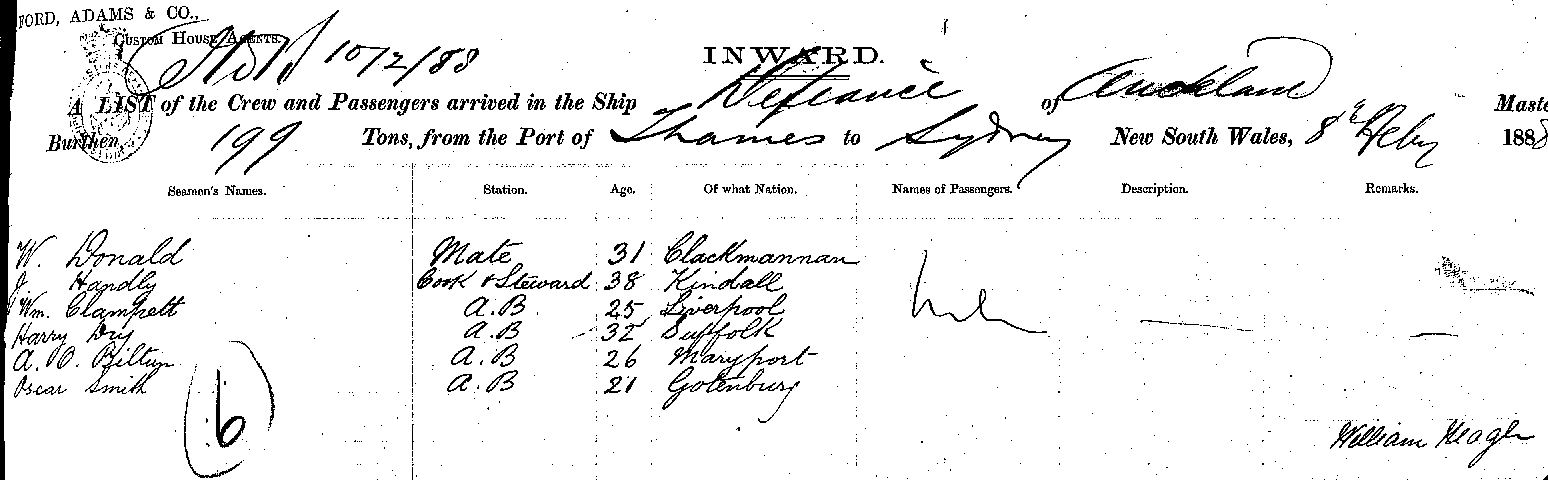 FORD, ADAMS & CO.,
CUSTOM HOUSE AGENTS.
10/2/88
INWARD.
A LIST of the Crew and Passengers arrived in the Ship Defiance of Auckland Maste
Burthen 199 Tons, from the Port of Thames to Sydney New South Wales, 8th Feby 1888
Seamen's Names. Station. Age. Of what Nation. Names of Passengers. Description. Remarks.
W. Donald Mate 31 Clackmannan
J. Handly Cook & Steward 38 Kindall
Wm. Clampett A.B 25 Liverpool
Harry Dry A.B 32 Suffolk
A. O. Biltun A.B 26 Maryport
Oscar Smith A.B 21 Gotenburg
(6)
William Neagle